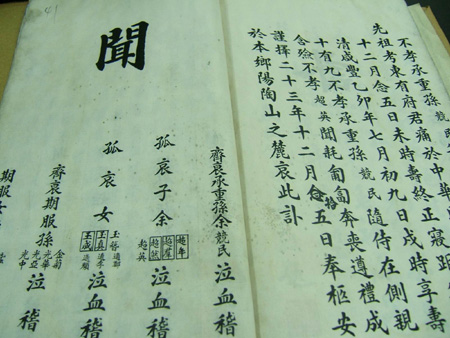 不孝承重孫競民
先祖考東有府君痛於中華民
十二月念五日未時壽終正寢距
清咸豐乙卯年七月初九日戌時享壽
十有九不孝承重孫競民隨侍在側親
含殮不孝超英聞耗匍匐奔喪遵禮成
謹擇二十三年十二月念拾五日奉柩安
於本鄉陽陶山之麓哀此訃
聞
齊衰承重孫余競民泣血稽
孤哀子余超英泣血稽
孤哀女泣血稽
齊衰期服孫金菊光華光亞光中泣稽
期服
41